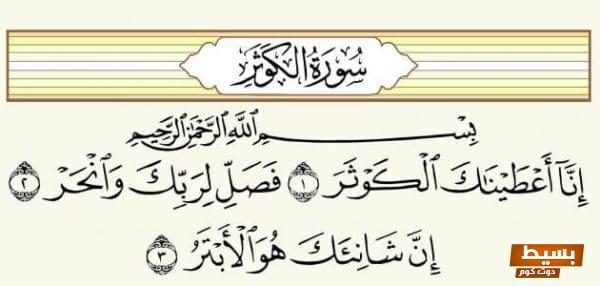 سُورَةُ الكَوْثَرِ
بِسْمِ اللَّهِ الرَّحْمَٰنِ الرَّحِيمِ
إِنَّآ أَعْطَيْنَٰكَ ٱلْكَوْثَرَ ١ فَصَلِّ لِرَبِّكَ وَٱنْحَرْ ٢
إِنَّ شَانِئَكَ هُوَ ٱلْأَبْتَرُ ٣
بسيط
دوت كوم